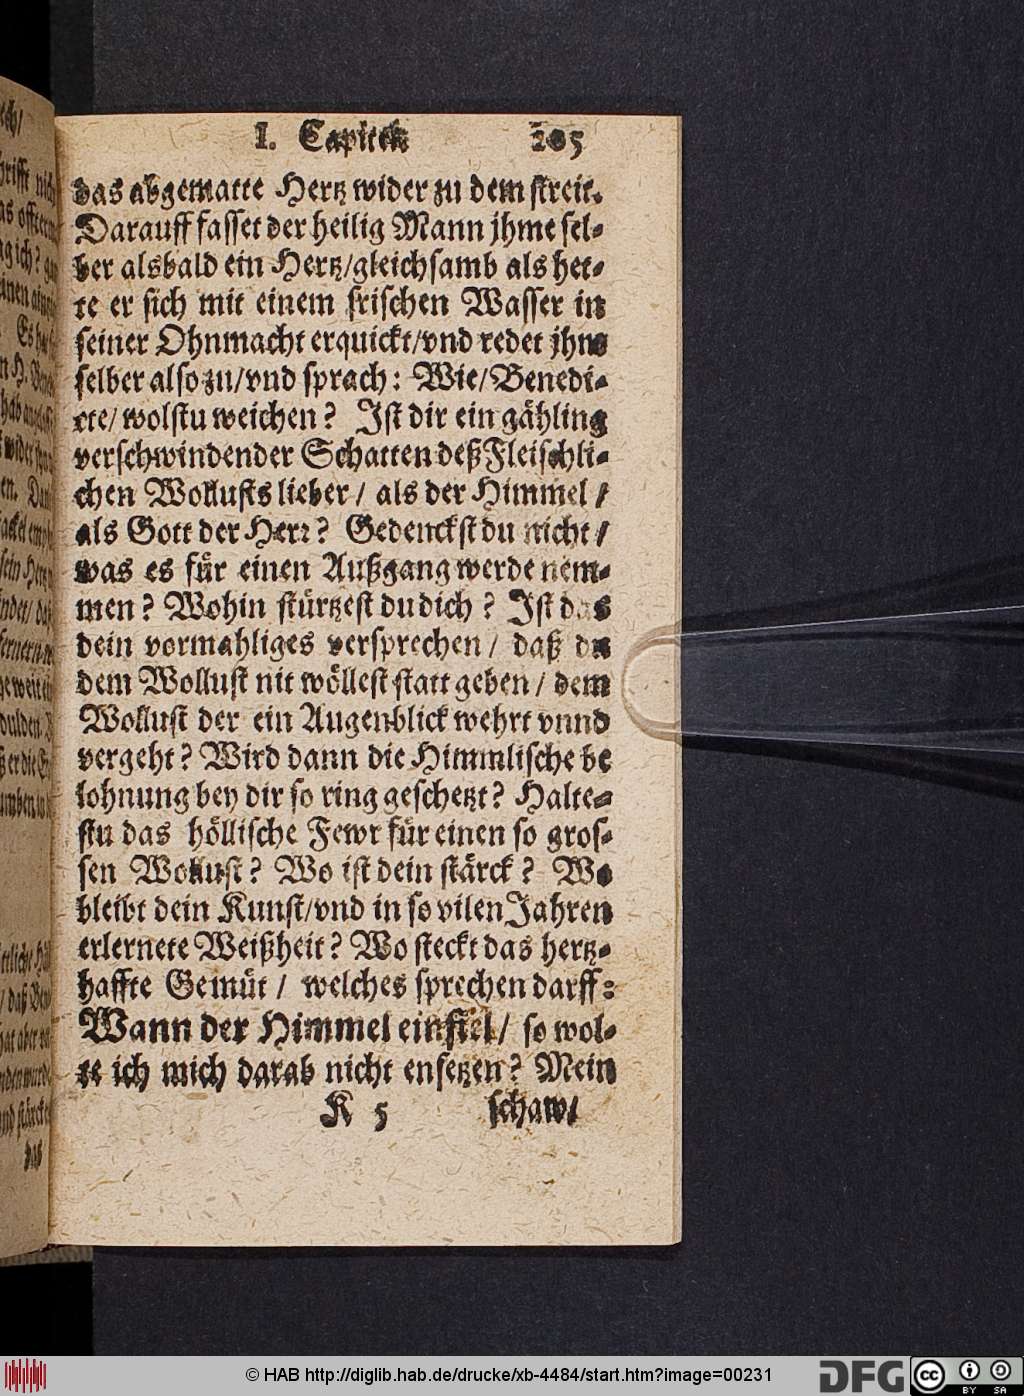 I. Capitel. 205
das abgematte Hertz wider zu dem streit.
Darauff fasset der heilig Mann jhme sel-
ber alsbald ein Hertz/gleichsamb als het-
te er sich mit einem frischen Wasser in
seiner Ohnmacht erquickt/vnd redet jhm
selber also zu/vnd sprach: Wie/Benedi-
cte/ wolstu weichen? Ist dir ein gähling
verschwindender Schatten deß Fleischli-
chen Wollusts lieber / als der Himmel /
als Gott der Herr? Gedenckst du nicht /
was es für einen Außgang werde nem-
men? Wohin stürtzest du dich? Ist das
dein vormahliges versprechen / daß du
dem Wollust nit wöllest statt geben / dem
Wollust der ein Augenblick wehrt vnnd
vergeht? Wird dann die Himmlische be
lohnung bey dir so ring geschetzt? Halte-
stu das höllische Fewr für einen so gros-
sen Wollust? Wo ist dein stärck? Wo
bleibt dein Kunst/vnd in so vilen Jahren
erlernete Weißheit? Wo steckt das hertz-
haffte Gemüt / welches sprechen darff:
Wann der Himmel einfiel/ so wol-
te ich mich darab nicht ensetzen? Mein
K 5 schaw/
das
© HAB http://diglib.hab.de/drucke/xb-4484/start.htm?image=00231
DFG
cc BY SA